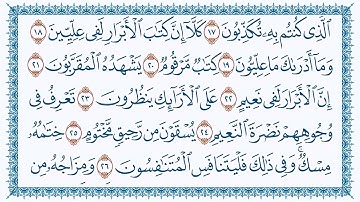 ٱلَّذِى كُنتُم بِهِۦ تُكَذِّبُونَ ١٧ كَلَّآ إِنَّ كِتَٰبَ ٱلْأَبْرَارِ لَفِى عِلِّيِّينَ ١٨
وَمَآ أَدْرَىٰكَ مَا عِلِّيُّونَ ١٩ كِتَٰبٌ مَّرْقُومٌ ٢٠ يَشْهَدُهُ ٱلْمُقَرَّبُونَ ٢١
إِنَّ ٱلْأَبْرَارَ لَفِى نَعِيمٍ ٢٢ عَلَى ٱلْأَرَآئِكِ يَنظُرُونَ ٢٣ تَعْرِفُ فِى
وُجُوهِهِمْ نَضْرَةَ ٱلنَّعِيمِ ٢٤ يُسْقَوْنَ مِن رَّحِيقٍ مَّخْتُومٍ ٢٥ خِتَٰمُهُۥ
مِسْكٌ ۚ وَفِى ذَٰلِكَ فَلْيَتَنَافَسِ ٱلْمُتَنَٰفِسُونَ ٢٦ وَمِزَاجُهُۥ مِن